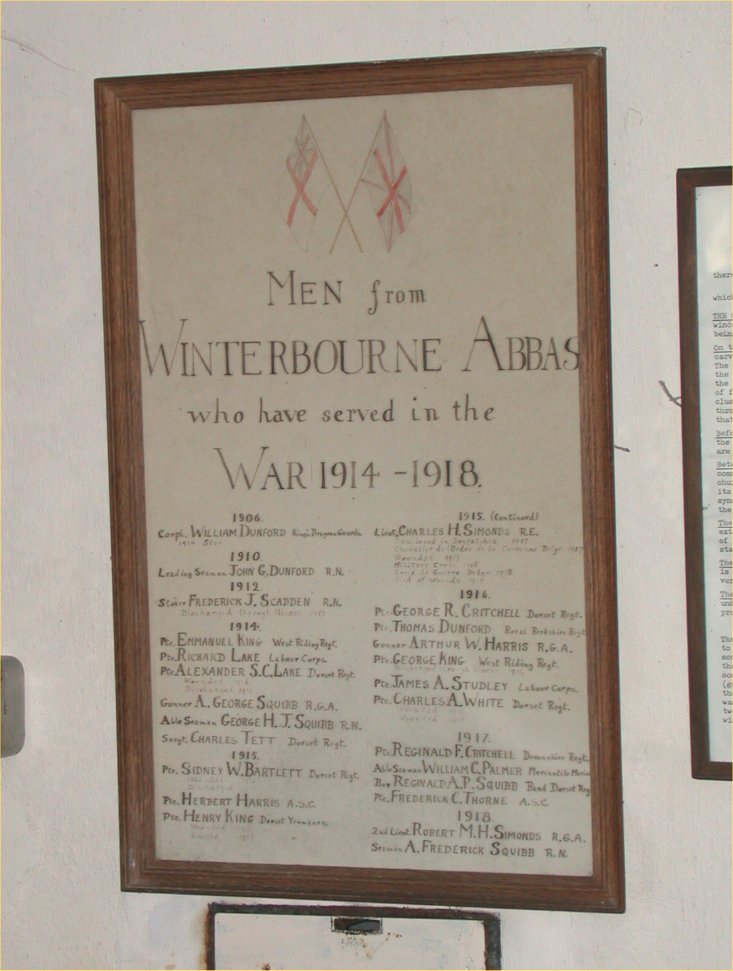 MEN from
WINTERBOURNE ABBAS
who have served in the
WAR 1914 - 1918.
1906.
Corpl. WILLIAM DUNFORD King's Dragoon Guards.
1914 Star
1910.
Leading Seaman JOHN G. DUNFORD R.N.
1912.
Stoker FREDERICK J. SCADDEN R.N.
Discharged through Illness 1917
1914.
Pte. EMMANUEL KING West Riding Regt.
Pte. RICHARD LAKE Labour Corps.
Pte. ALEXANDER S.C. LAKE Dorset Regt.
Wounded 1916
Discharged
Gunner A. GEORGE SQUIBB R.G.A.
Able Seaman GEORGE H.J. SQUIBB R.N.
Sergt. CHARLES TETT Dorset Regt.
1915.
Pte. SIDNEY W. BARTLETT Dorset Regt.
Wounded
Discharged
Pte. HERBERT HARRIS A.S.C.
Pte. HENRY KING Dorset Yeomanry.
Wounded
1917
1915. (Continued)
Lieut. CHARLES H. SIMONDS R.E.
Mentioned in Despatches 1917
Chevalier de l'Order de la Couronne Belge 1917
Wounded 1917
Military Cross 1918
Croix de Guerre Belge 1918
Died of Wounds 1918
1916.
Pte. GEORGE R. CRITCHELL Dorset Regt.
Pte. THOMAS DUNFORD Royal Berkshire Regt.
Gunner ARTHUR W. HARRIS R.G.A.
Pte. GEORGE KING West Riding Regt.
Pte. JAMES A. STUDLEY Labour Corps.
Pte. CHARLES A. WHITE Dorset Regt.
Wounded
1917.
Pte. REGINALD F. CRITCHELL Devonshire Regt.
Able Seaman WILLIAM C. PALMER Mercantile Marine
Boy REGINALD A.P. SQUIBB Band Dorset Reg
Pte. FREDERICK C. THORNE A.S.C
1918.
2nd Lieut. ROBERT M.H. SIMONDS R.G.A.
Seaman A. FREDERICK SQUIBB R.N.